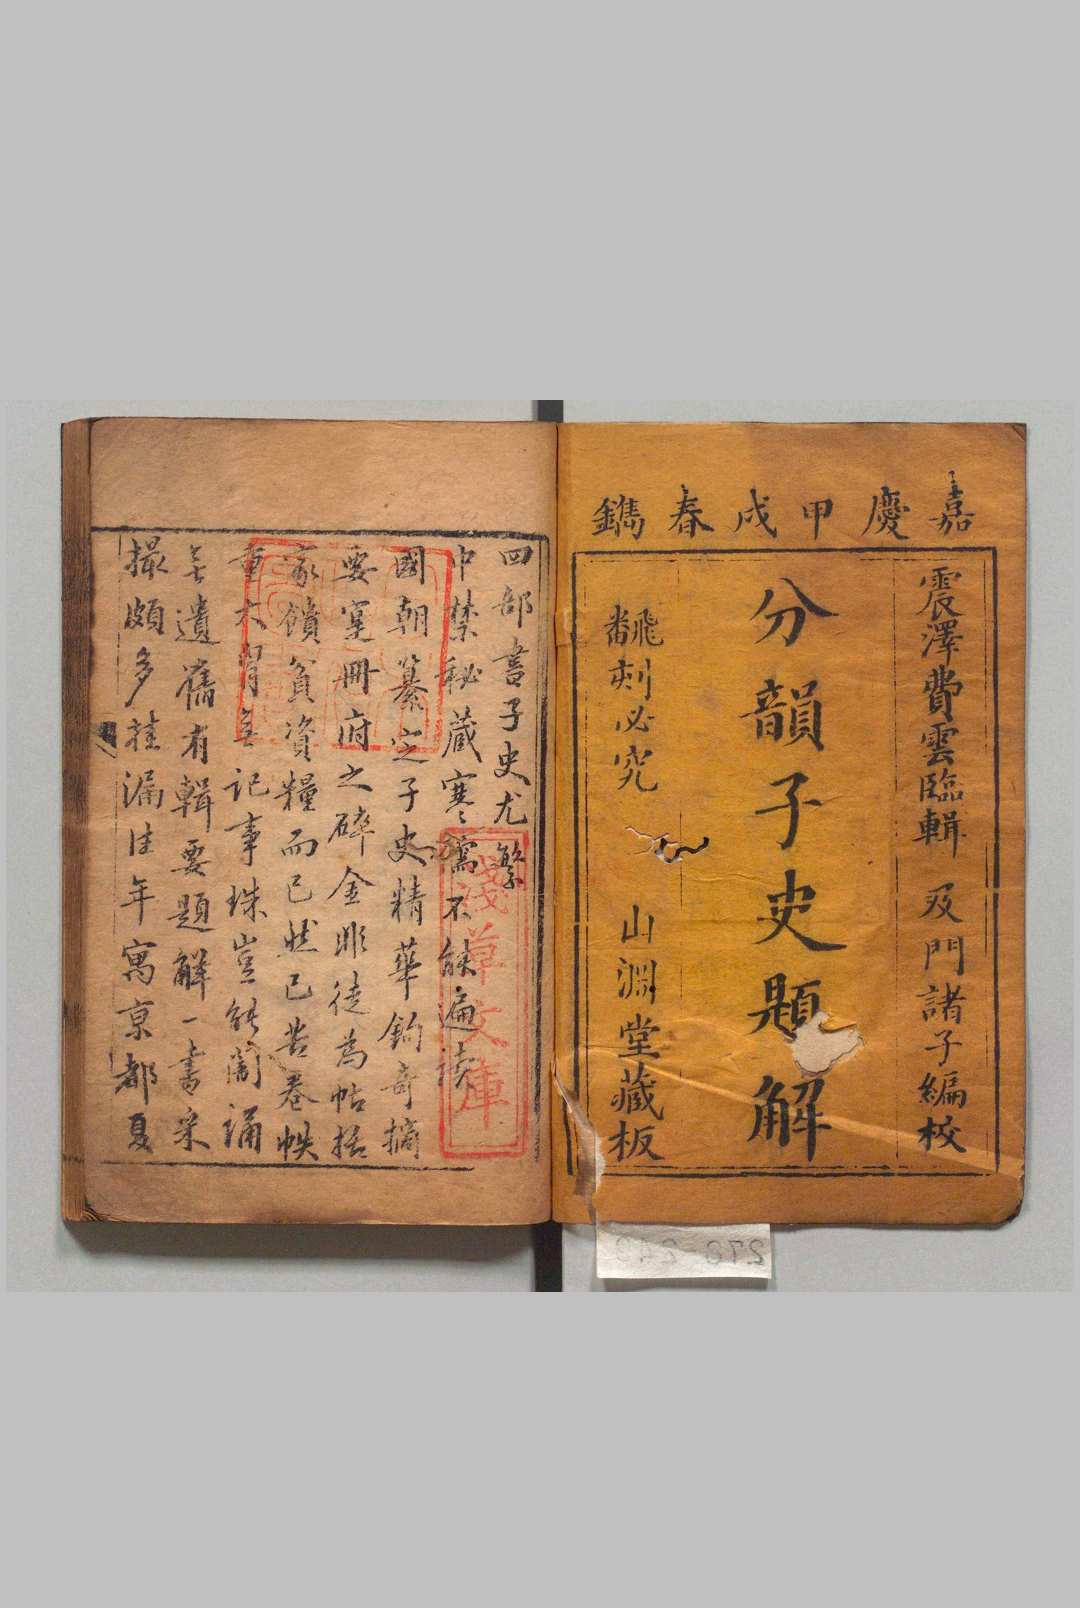 嘉慶甲戌春鐫
震澤費雲臨輯 及門諸子編校
分韻子史題解
飜刻必究 山淵堂藏板
四部書子史尤繁
中禁秘藏寒窶不能遍讀
國朝纂定子史精華鈎奇摘
要寔冊府之碎金非徒為帖括
家饋貧資糧而已然已苦卷帙
重大胷無記事珠豈能闇誦
無遺舊有輯要題解一書采
撮頗多挂漏往年寓京都夏
淺草文庫